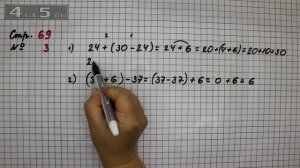 4at5au.ru
Стр. 69
№ 3
2 1
1) 24 + (30 - 24) = 24 + 6 = 20 + (4+6) = 20+10 = 30
2
2) (37 + 6) - 37 = (37 - 37) + 6 = 0 + 6 = 6